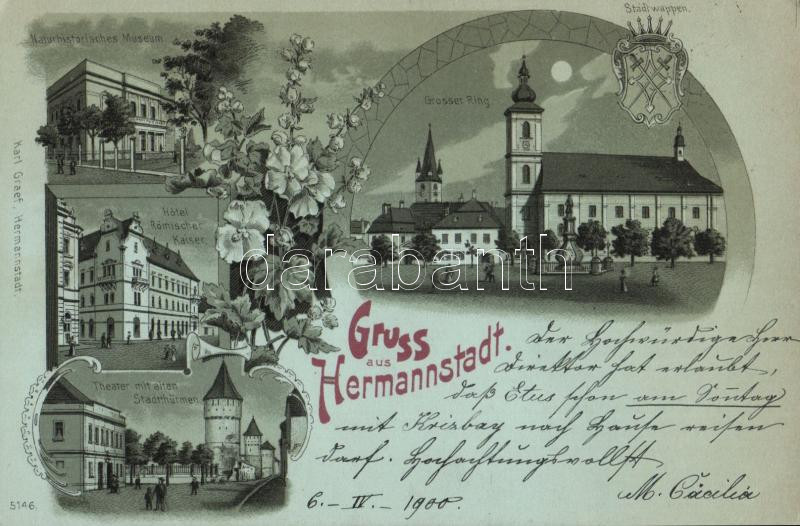 Stadtwappen.
Naturhistorisches Museum
Grosser Ring
Karl Graef, Hermannstadt.
Hôtel
Römischer
Kaiser.
darabanth
Gruss
aus
Hermannstadt.
Theater mit alten
Stadtthürmen.
Der Hochwürdige Herr
Direktor hat erlaubt,
daß Etus schon am Sonntag
mit Krizbay nach Hause reisen
darf. Hochachtungsvollst
M. Cäcilia
6. - IV. - 1900.
5146.